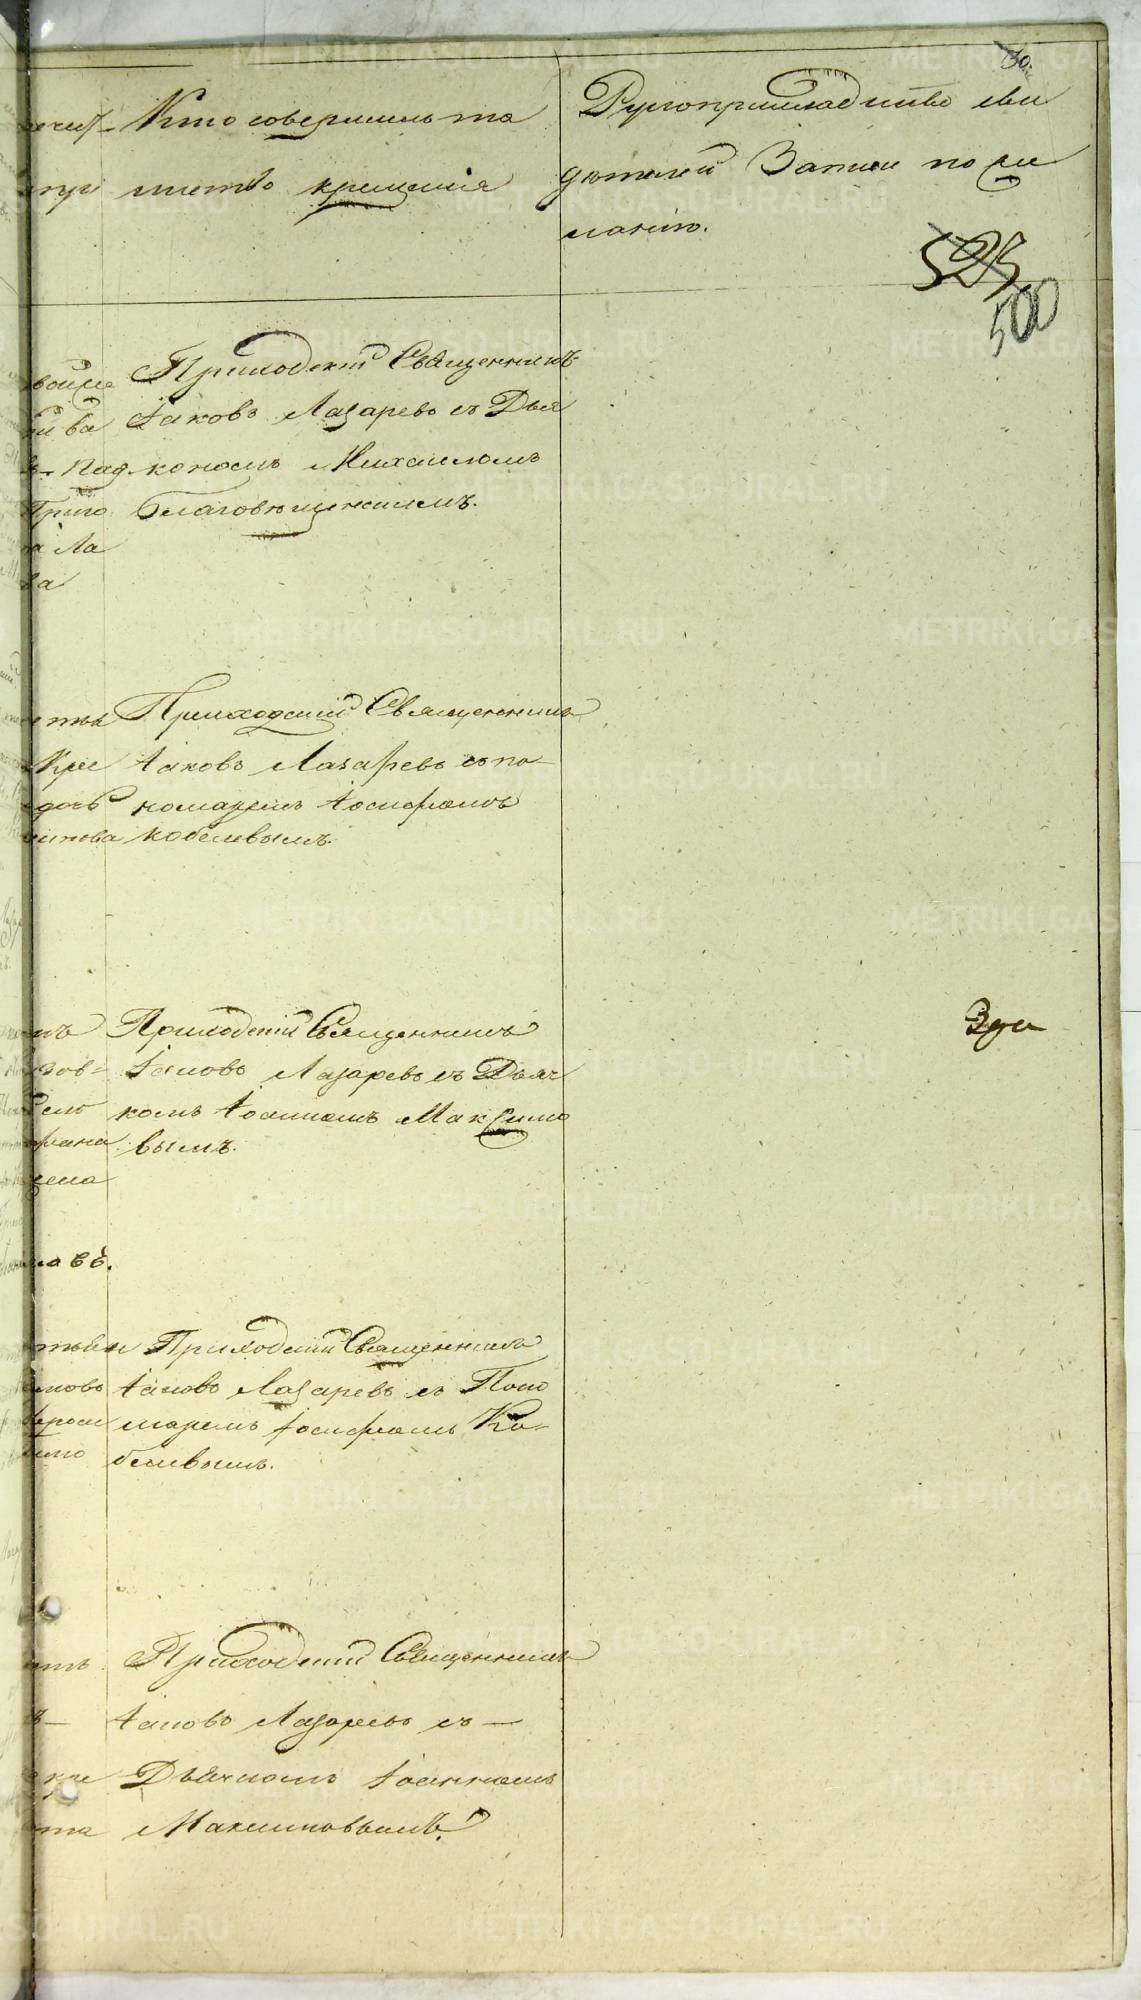 30.
Кто совершилъ та
инство крещенія
Рукоприкладство сви
дѣтелей Записи по же
ланію.
525
500
Приходскій Священникъ
Іаковъ Лазаревъ съ Дья
кономъ Михаиломъ
Благовѣщенскимъ.
Приго
а Ла
ва
Приходскій Священникъ
Іаковъ Лазаревъ съ по-
номаремъ Іосифомъ
Кобелевымъ.
Приходскій Священникъ
Іаковъ Лазаревъ съ Дьяч
комъ Іоанномъ Максимо
вымъ.
Приходскій Священникъ
Іаковъ Лазаревъ съ Поно
маремъ Іосифомъ Ко-
белевымъ.
Приходскій Священникъ
Іаковъ Лазаревъ съ —
Дьячкомъ Іоанномъ
Максимовымъ.
METRIKI.GASO-URAL.RU